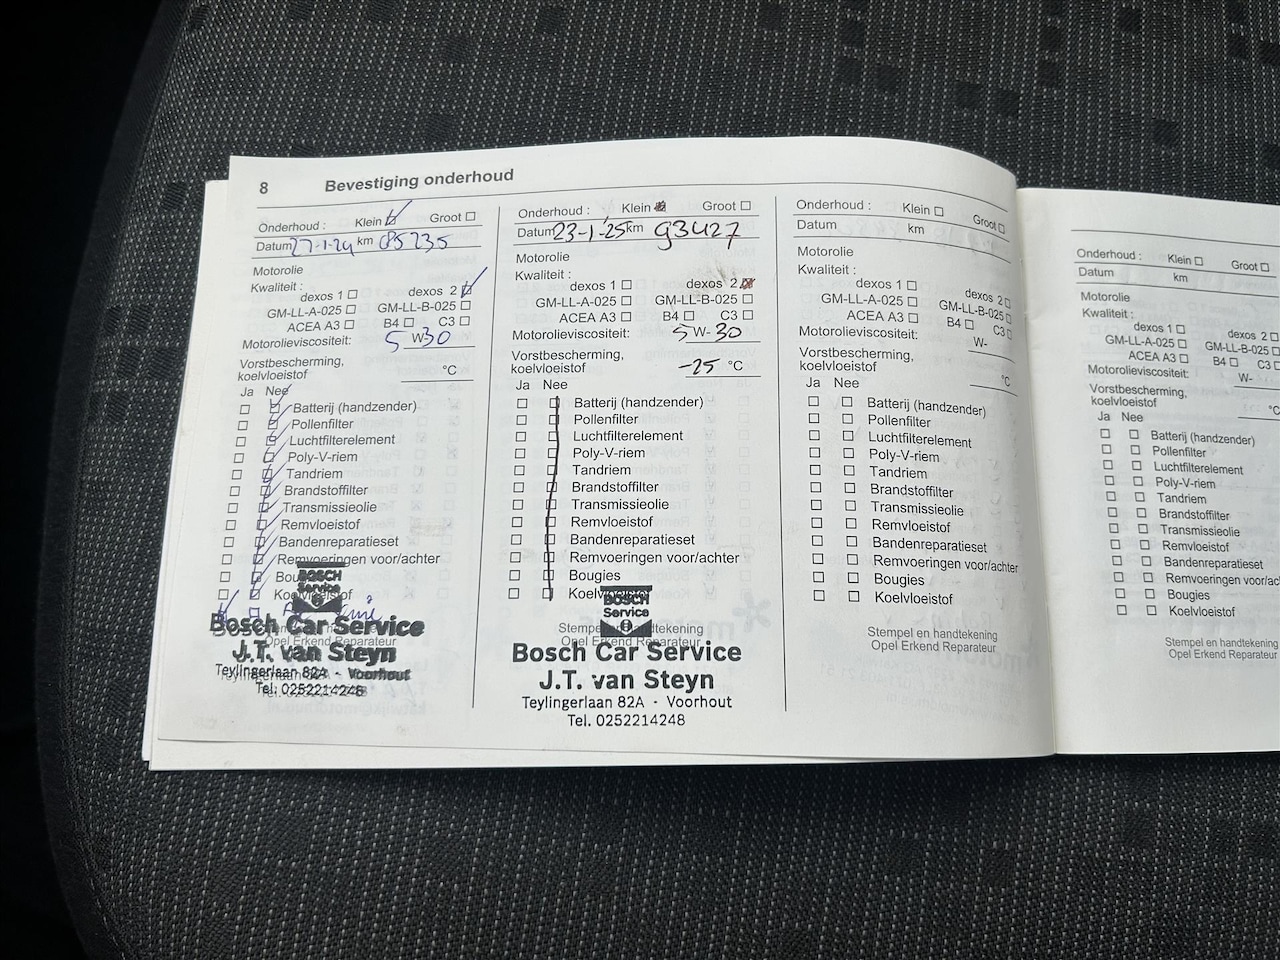 8 Bevestiging onderhoud
Onderhoud : Klein Groot
Datum 27-1-24 km 085235
Motorolie
Kwaliteit :
dexos 1 dexos 2
GM-LL-A-025 GM-LL-B-025
ACEA A3 B4 C3
Motorolieviscositeit: 5 W-30
Vorstbescherming,
koelvloeistof °C
Ja Nee
Batterij (handzender)
Pollenfilter
Luchtfilterelement
Poly-V-riem
Tandriem
Brandstoffilter
Transmissieolie
Remvloeistof
Bandenreparatieset
Remvoeringen voor/achter
Koelvloeistof
BOSCH
Service
Opel Erkend Reparateur
Bosch Car Service
J.T. van Steyn
Teylingerlaan 82A - Voorhout
Tel. 0252214248
Onderhoud : Klein Groot
Datum 23-1-25 km 93427
Motorolie
Kwaliteit :
dexos 1 dexos 2
GM-LL-A-025 GM-LL-B-025
ACEA A3 B4 C3
Motorolieviscositeit: 5 W-30
Vorstbescherming,
koelvloeistof -25 °C
Ja Nee
Batterij (handzender)
Pollenfilter
Luchtfilterelement
Poly-V-riem
Tandriem
Brandstoffilter
Transmissieolie
Remvloeistof
Bandenreparatieset
Remvoeringen voor/achter
Bougies
Koelvloeistof
BOSCH
Service
Stempel en handtekening
Opel Erkend Reparateur
Bosch Car Service
J.T. van Steyn
Teylingerlaan 82A - Voorhout
Tel. 0252214248
Onderhoud : Klein Groot
Datum km
Motorolie
Kwaliteit :
dexos 1 dexos 2
GM-LL-A-025 GM-LL-B-025
ACEA A3 B4 C3
Motorolieviscositeit: W-
Vorstbescherming,
koelvloeistof °C
Ja Nee
Batterij (handzender)
Pollenfilter
Luchtfilterelement
Poly-V-riem
Tandriem
Brandstoffilter
Transmissieolie
Remvloeistof
Bandenreparatieset
Remvoeringen voor/achter
Bougies
Koelvloeistof
Stempel en handtekening
Opel Erkend Reparateur
Onderhoud : Klein Groot
Datum km
Motorolie
Kwaliteit :
dexos 1 dexos 2
GM-LL-A-025 GM-LL-B-025
ACEA A3 B4 C3
Motorolieviscositeit: W-
Vorstbescherming,
koelvloeistof °C
Ja Nee
Batterij (handzender)
Pollenfilter
Luchtfilterelement
Poly-V-riem
Tandriem
Brandstoffilter
Transmissieolie
Remvloeistof
Bandenreparatieset
Remvoeringen voor/ac
Bougies
Koelvloeistof
Stempel en handtekening
Opel Erkend Reparateur